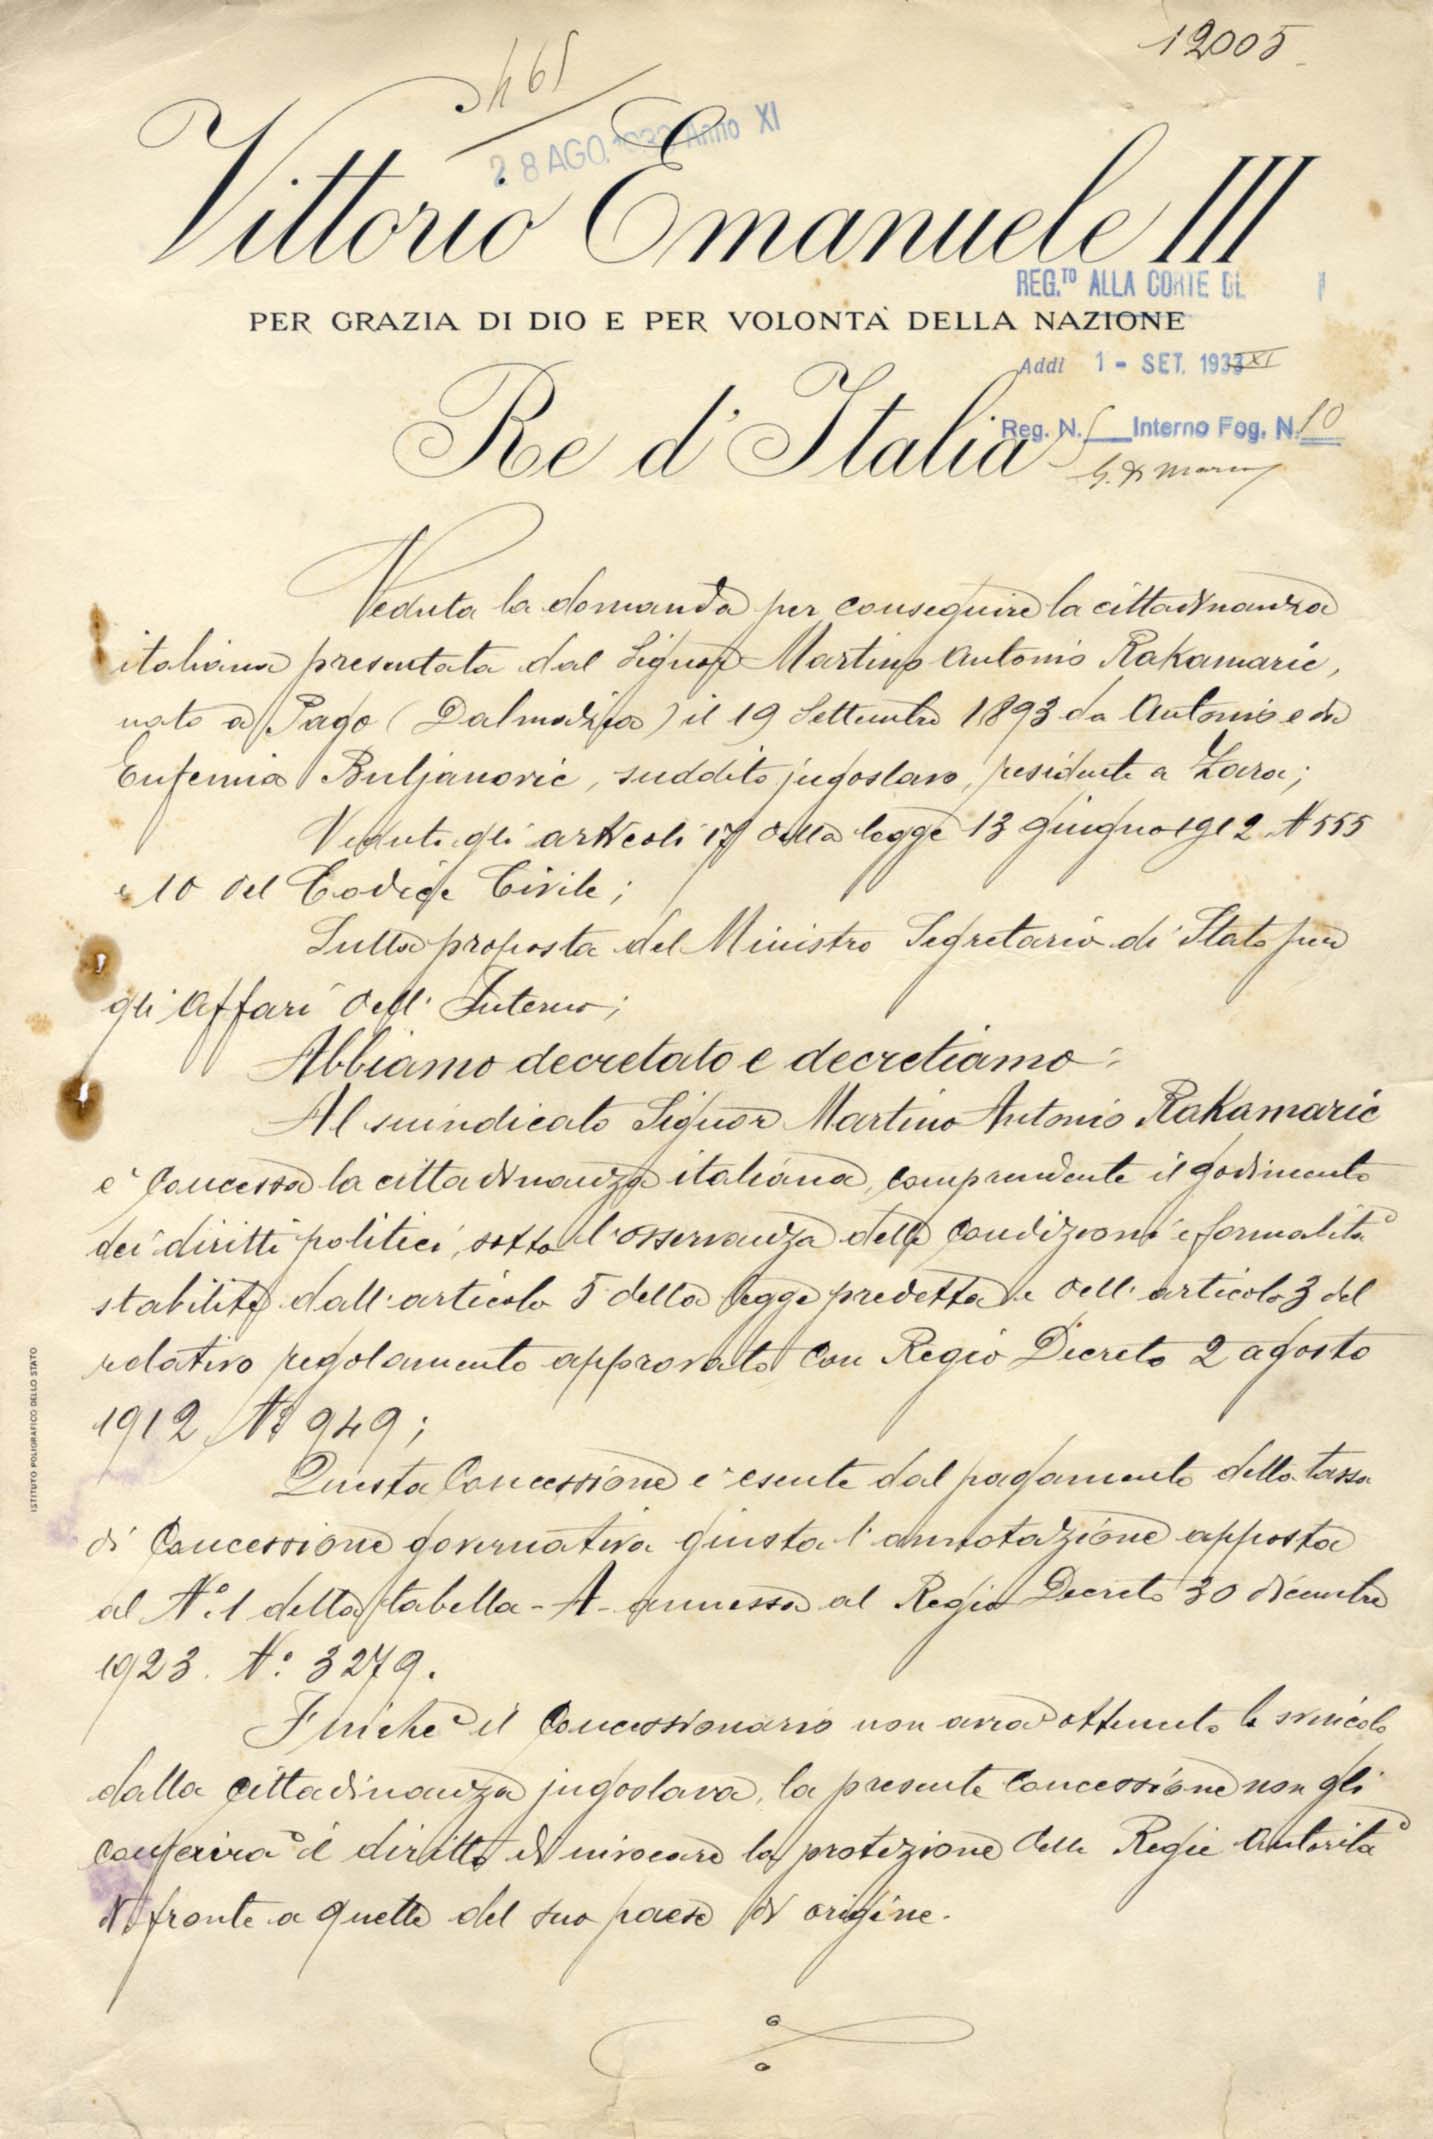 12005
465
28 AGO. 1933 Anno XI
Vittorio Emanuele III
REG.TO ALLA CORTE DE
PER GRAZIA DI DIO E PER VOLONTÀ DELLA NAZIONE
Addì 1 - SET. 1933 XI
Re d'Italia
Reg. N. Interno Fog. N. 10
Veduta la domanda per conseguire la cittadinanza
italiana presentata dal Signor Martino Antonio Rakamaric,
nato a Pago (Dalmazia) il 19 Settembre 1893 da Antonio e da
Eufemia Buljanovic, suddito jugoslavo, residente a Zara;
Veduti gli articoli 17 della legge 13 giugno 1912 N 555
e 10 del Codice Civile;
Sulla proposta del Ministro Segretario di Stato per
gli Affari dell'Interno;
Abbiamo decretato e decretiamo:
Al suindicato Signor Martino Antonio Rakamaric
è concessa la cittadinanza italiana, comprendente il godimento
dei diritti politici, sotto l'osservanza delle condizioni e formalità
stabilite dall'articolo 5 della legge predetta e dell'articolo 3 del
relativo regolamento approvato con Regio Decreto 2 agosto
1912 N° 949;
Questa concessione è esente dal pagamento della tassa
di concessione governativa giusta l'annotazione apposta
al N° 1 della tabella - A - annessa al Regio Decreto 30 dicembre
1923. N° 3279.
Finchè il concessionario non avrà ottenuto lo svincolo
dalla cittadinanza jugoslava, la presente concessione non gli
conferirà il diritto di invocare la protezione delle Regie Autorità
di fronte a quelle del suo paese di origine.
ISTITUTO POLIGRAFICO DELLO STATO